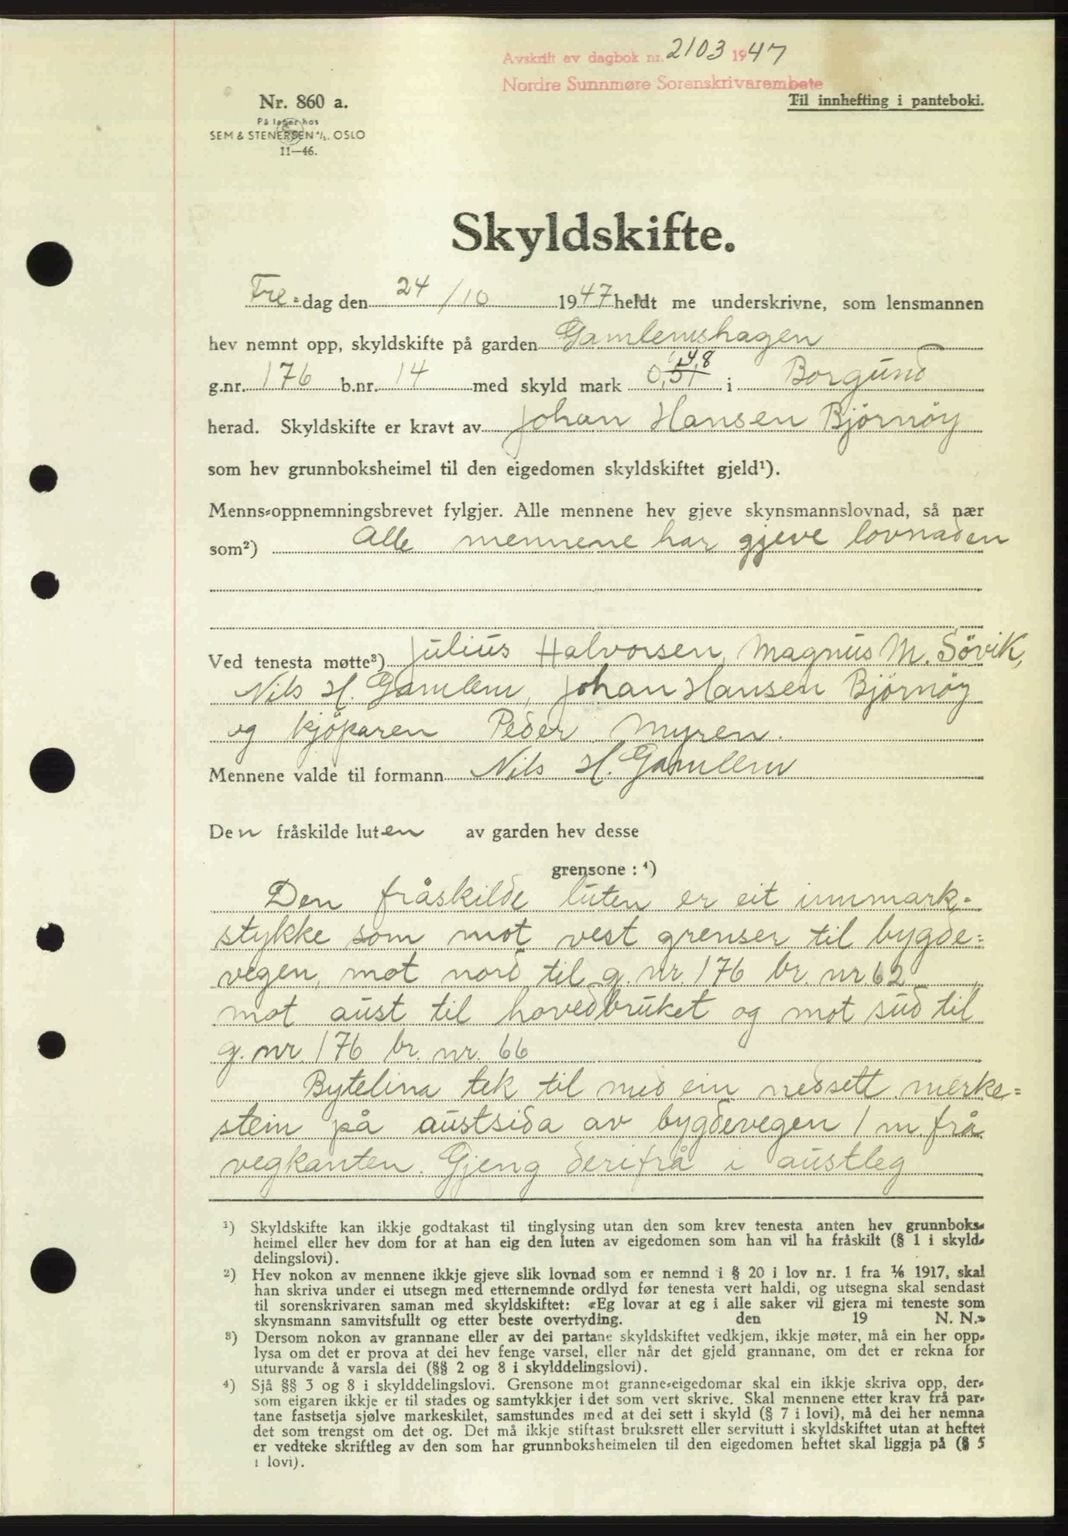 Avskrift av dagbok nr. 2103 1947
Nordre Sunnmøre Sorenskrivarembete
Nr. 860 a.
På lager hos
SEM & STENERSEN A/S. OSLO
11—46.
Til innhefting i panteboki.
Skyldskifte.
Fre-dag den 24/10 1947 heldt me underskrivne, som lensmannen
hev nemnt opp, skyldskifte på garden Gamlemshagen
g.nr. 176 b.nr. 14 med skyld mark 0,51 48 i Borgund
herad. Skyldskifte er kravt av Johan Hansen Bjørnøy
som hev grunnboksheimel til den eigedomen skyldskiftet gjeld¹).
Menns-oppnemningsbrevet fylgjer. Alle mennene hev gjeve skynsmannslovnad, så nær
som²) Alle mennene har gjeve lovnaden
Ved tenesta møtte³) Julius Halvorsen, Magnus M. Søvik,
Nils H. Gamlem, Johan Hansen Bjørnøy
og kjøparen Peder Myren.
Mennene valde til formann Nils H. Gamlem
Den fråskilde luten av garden hev desse
grensone : ⁴)
Den fråskilde luten er eit innmark-
stykke som mot vest grenser til bygde-
vegen, mot nord til g. nr. 176 br. nr. 62
mot aust til hovedbruket og mot sud til
g. nr 176 br. nr. 66
Bytelina tek til med ein nedsett merke-
stein på austsida av bygdevegen 1 m. frå
vegkanten. Gjeng derifrå i austleg
¹) Skyldskifte kan ikkje godtakast til tinglysing utan den som krev tenesta anten hev grunnboks-
heimel eller hev dom for at han eig den luten av eigedomen som han vil ha fråskilt (§ 1 i skyld-
delingslovi).
²) Hev nokon av mennene ikkje gjeve slik lovnad som er nemnd i § 20 i lov nr. 1 fra 1/6 1917, skal
han skriva under ei utsegn med etternemnde ordlyd før tenesta vert haldi, og utsegna skal sendast
til sorenskrivaren saman med skyldskiftet: «Eg lovar at eg i alle saker vil gjera mi teneste som
skynsmann samvitsfullt og etter beste overtyding. den 19 N. N.»
³) Dersom nokon av grannane eller av dei partane skyldskiftet vedkjem, ikkje møter, må ein her opp-
lysa om det er prova at dei hev fenge varsel, eller når det gjeld grannane, om det er rekna for
uturvande å varsla dei (§§ 2 og 8 i skylddelingslovi).
⁴) Sjå §§ 3 og 8 i skylddelingslovi. Grensone mot granne-eigedomar skal ein ikkje skriva opp, der-
som eigaren ikkje er til stades og samtykkjer i det som vert skrive. Skal mennene etter krav frå par-
tane fastsetja sjølve markeskilet, samstundes med at dei sett i skyld (§ 7 i lovi), må dei her nemna
det som trengst om det og. Det må ikkje stiftast bruksrett eller servitutt i skyldskiftet utan at heftet
er vedteke skriftleg av den som har grunnboksheimelen til den eigedomen heftet skal liggja på (§ 5
i lovi).